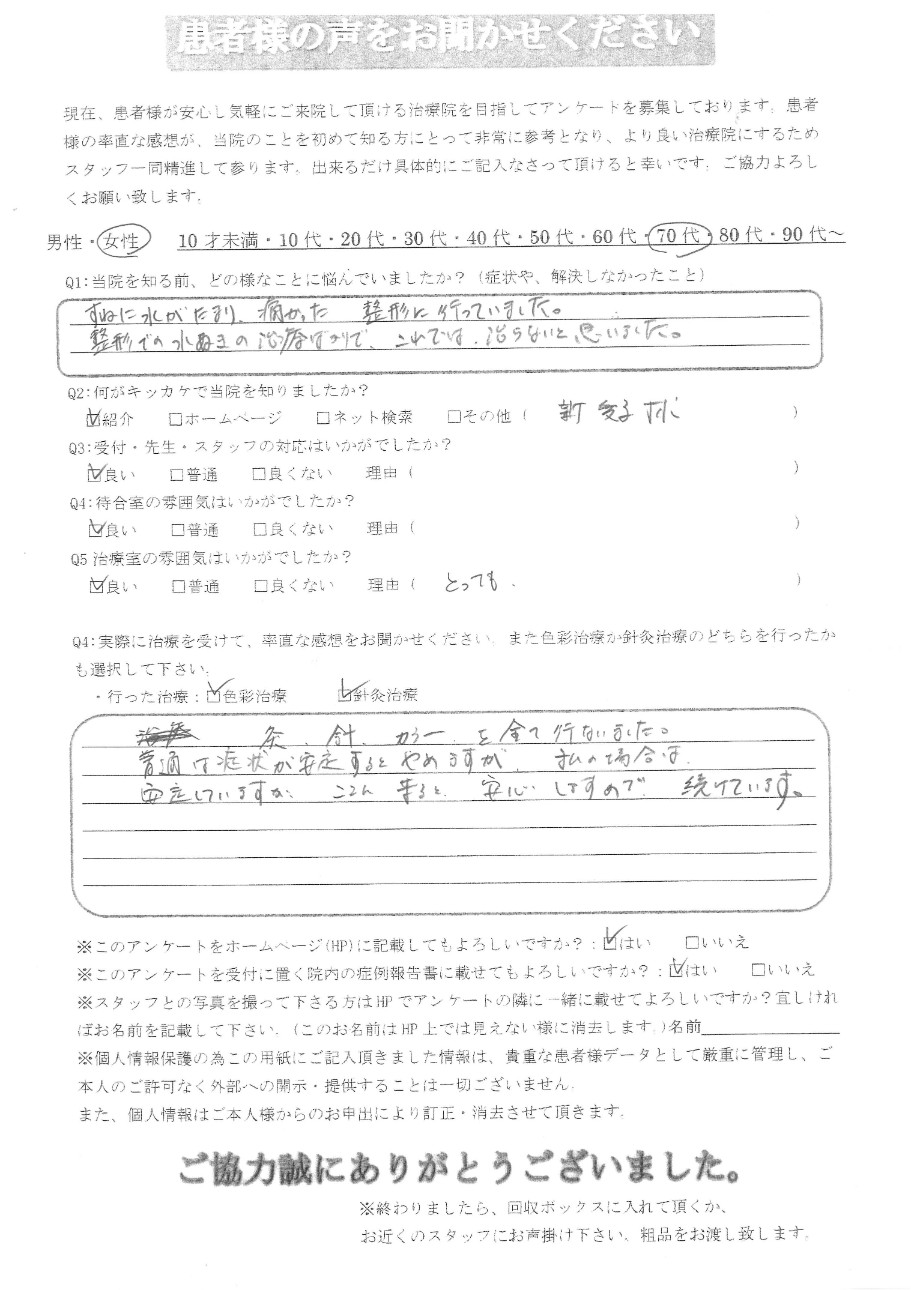 患者様の声をお聞かせください
現在、患者様が安心し気軽にご来院して頂ける治療院を目指してアンケートを募集しております。患者
様の率直な感想が、当院のことを初めて知る方にとって非常に参考となり、より良い治療院にするため
スタッフ一同精進して参ります。出来るだけ具体的にご記入なさって頂けると幸いです。ご協力よろし
くお願い致します。
男性・女性 10才未満・10代・20代・30代・40代・50代・60代・70代・80代・90代～
Q1:当院を知る前、どの様なことに悩んでいましたか？（症状や、解決しなかったこと）
に水がたまり、痛かった 整形に行っていました。
整形での水ぬきの治療ばかりで、これでは、治らないと思いました。
Q2:何がキッカケで当院を知りましたか？
☑紹介 □ホームページ □ネット検索 □その他（ ）
Q3:受付・先生・スタッフの対応はいかがでしたか？
☑良い □普通 □良くない 理由（ ）
Q4:待合室の雰囲気はいかがでしたか？
☑良い □普通 □良くない 理由（ ）
Q5治療室の雰囲気はいかがでしたか？
☑良い □普通 □良くない 理由（ とっても. ）
Q4:実際に治療を受けて、率直な感想をお聞かせください。また色彩治療か針灸治療のどちらを行ったか
も選択して下さい。
・行った治療：☑色彩治療 ☑針灸治療
灸、針、カラー を全て行ないました。
普通は症状が安定するとやめますが、私の場合は、
安定していますが、 来ると、安心しますので 続けています。
※このアンケートをホームページ(HP)に記載してもよろしいですか？：☑はい □いいえ
※このアンケートを受付に置く院内の症例報告書に載せてもよろしいですか？：☑はい □いいえ
※スタッフとの写真を撮って下さる方はHPでアンケートの隣に一緒に載せてよろしいですか？宜しけれ
ばお名前を記載して下さい。(このお名前はHP上では見えない様に消去します。)名前
※個人情報保護の為この用紙にご記入頂きました情報は、貴重な患者様データとして厳重に管理し、ご
本人のご許可なく外部への開示・提供することは一切ございません。
また、個人情報はご本人様からのお申出により訂正・消去させて頂きます。
ご協力誠にありがとうございました。
※終わりましたら、回収ボックスに入れて頂くか、
お近くのスタッフにお声掛け下さい。粗品をお渡し致します。